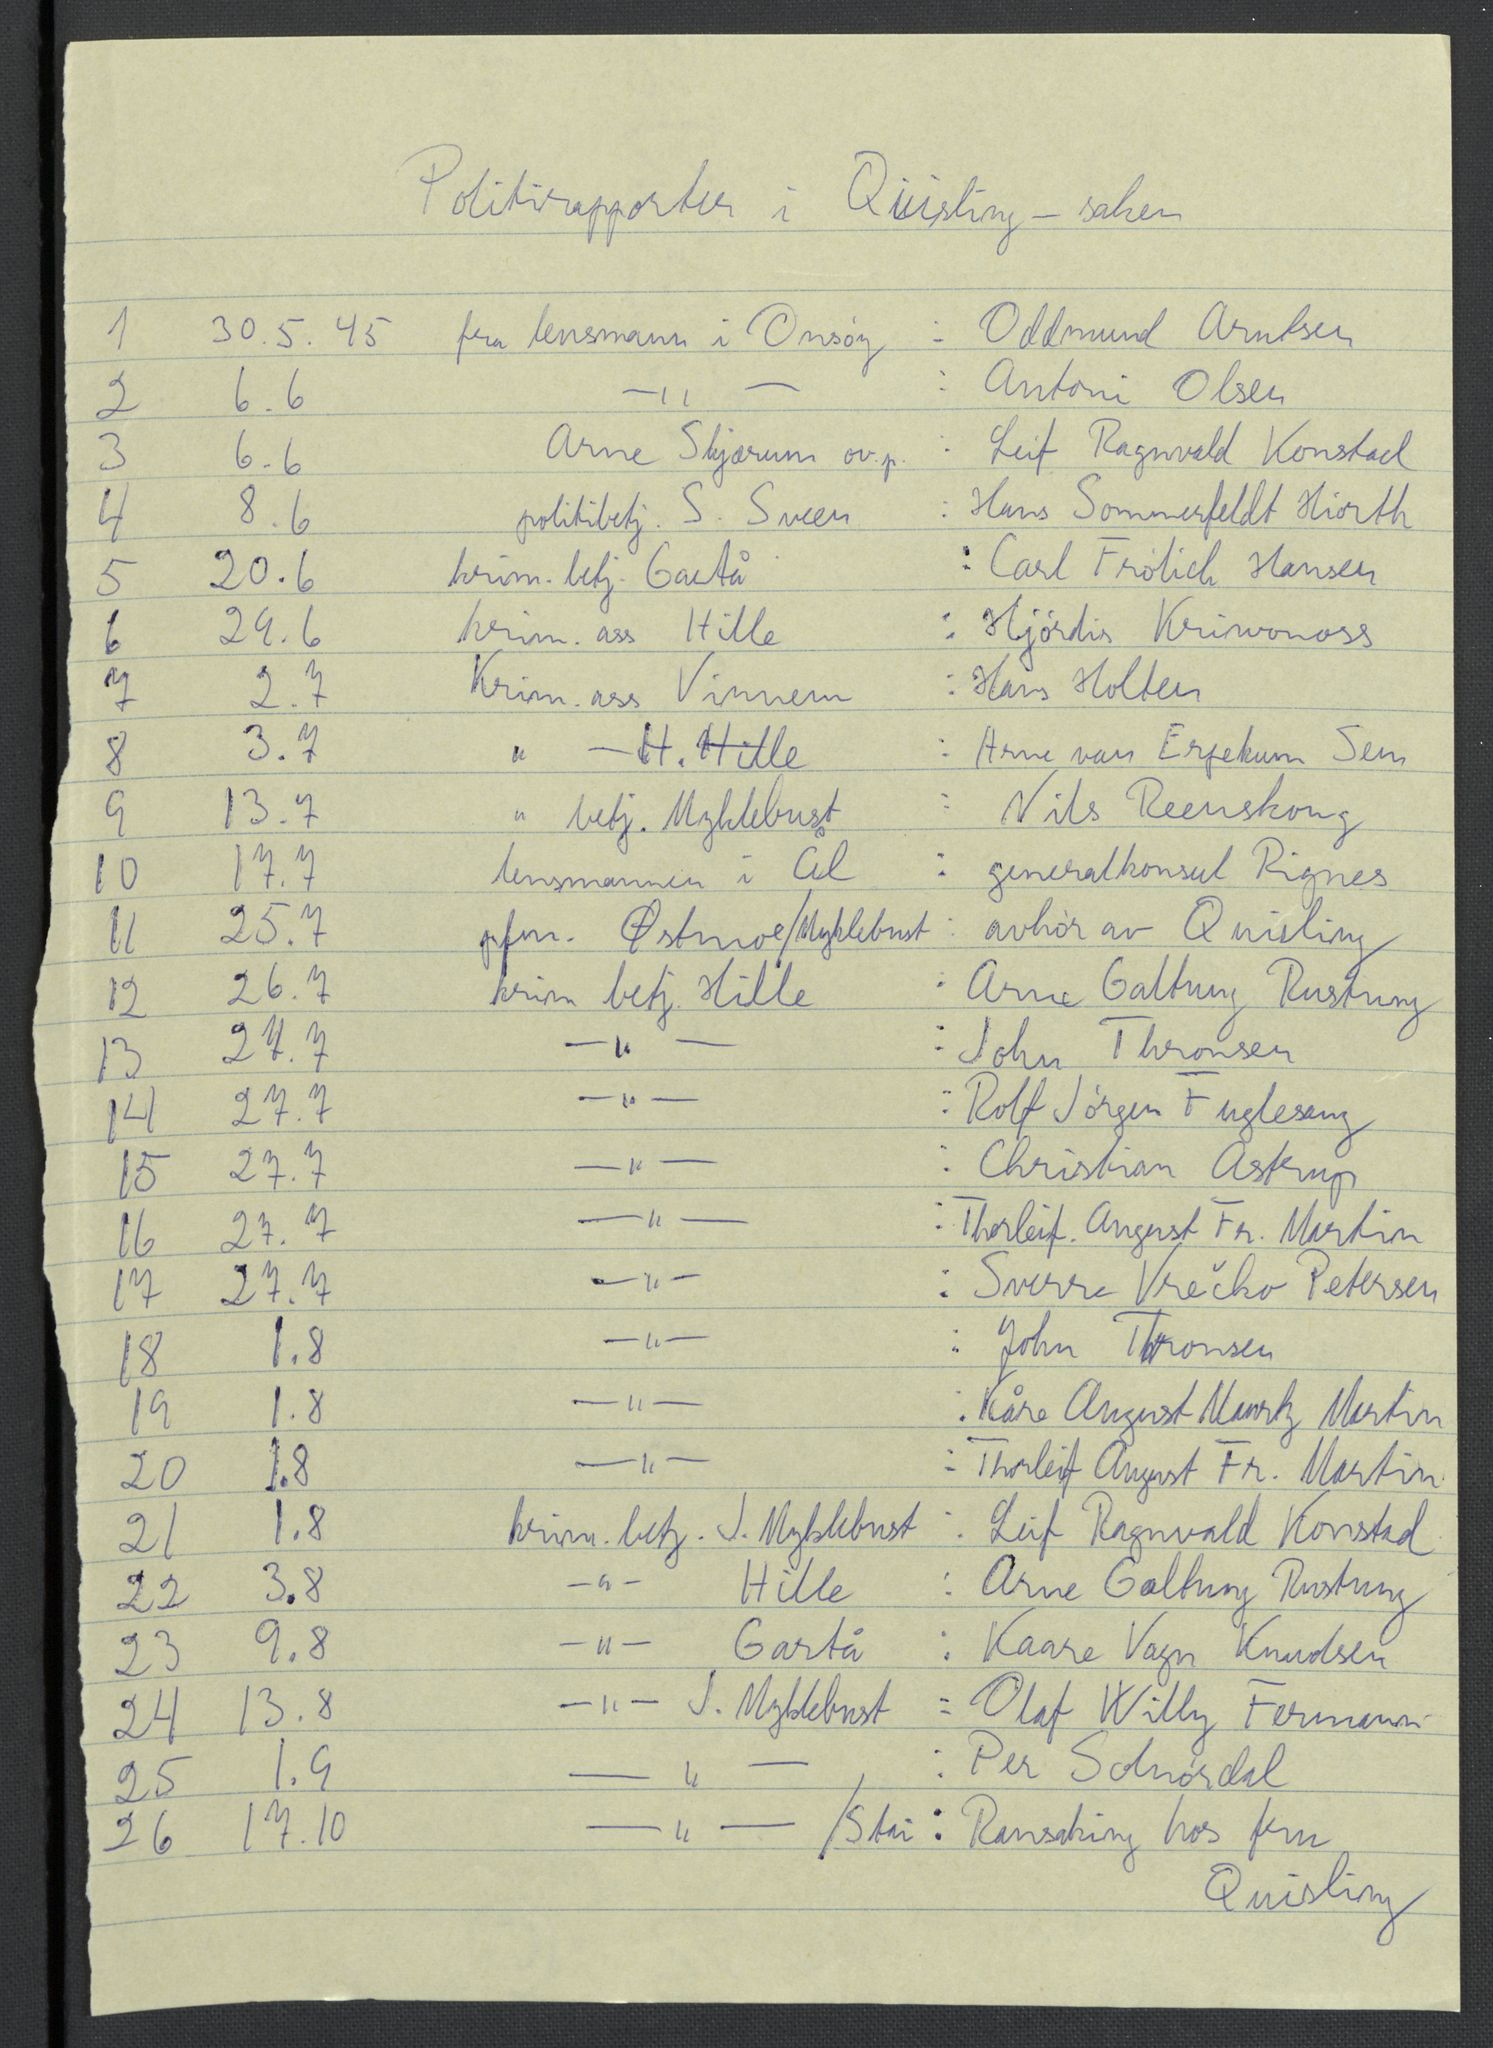 Politirapporter i Quisling-saken
1 30.5.45 fra lensmann i Onsøy : Oddmund Arntsen
2 6.6 —"— : Antoni Olsen
3 6.6 Arne Skjærum ov.p. : Leif Ragnvald Konstad
4 8.6 politibetj. S. Sveen : Hans Sommerfeldt Hiorth
5 20.6 krim. betj. Gartå : Carl Frölich Hansen
6 29.6 krim. ass Hille : Hjördis Kriwonoss
7 2.7 Krim. ass Vinnem : Hans Holten
8 3.7 " — H. Hille : Arne van Erpekum Sem
9 13.7 " betj. Myklebust : Nils Reenskoug
10 17.7 lensmannen i Ål : generalkonsul Rignes
11 25.7 pfm. Østmoe/Myklebust : avhör av Quisling
12 26.7 krim betj. Hille : Arne Galtung Rustung
13 27.7 —"— : John Thronsen
14 27.7 —"— : Rolf Jörgen Fuglesang
15 27.7 —"— : Christian Astrup
16 27.7 —"— : Thorleif. August Fr. Martin
17 27.7 —"— : Sverre Vrečko Petersen
18 1.8 —"— : John Thronsen
19 1.8 —"— : Kåre August Mauritz Martin
20 1.8 —"— : Thorleif August Fr. Martin
21 1.8 krim. betj. J. Myklebust : Leif Ragnvald Konstad
22 3.8 —"— Hille : Arne Galtung Rustung
23 9.8 —"— Gartå : Kaare Vagn Knudsen
24 13.8 —"— J. Myklebust : Olaf Willy Fermann
25 1.9 —"— : Per Solnördal
26 17.10 —"— /Stai : Ransaking hos fru
Quisling